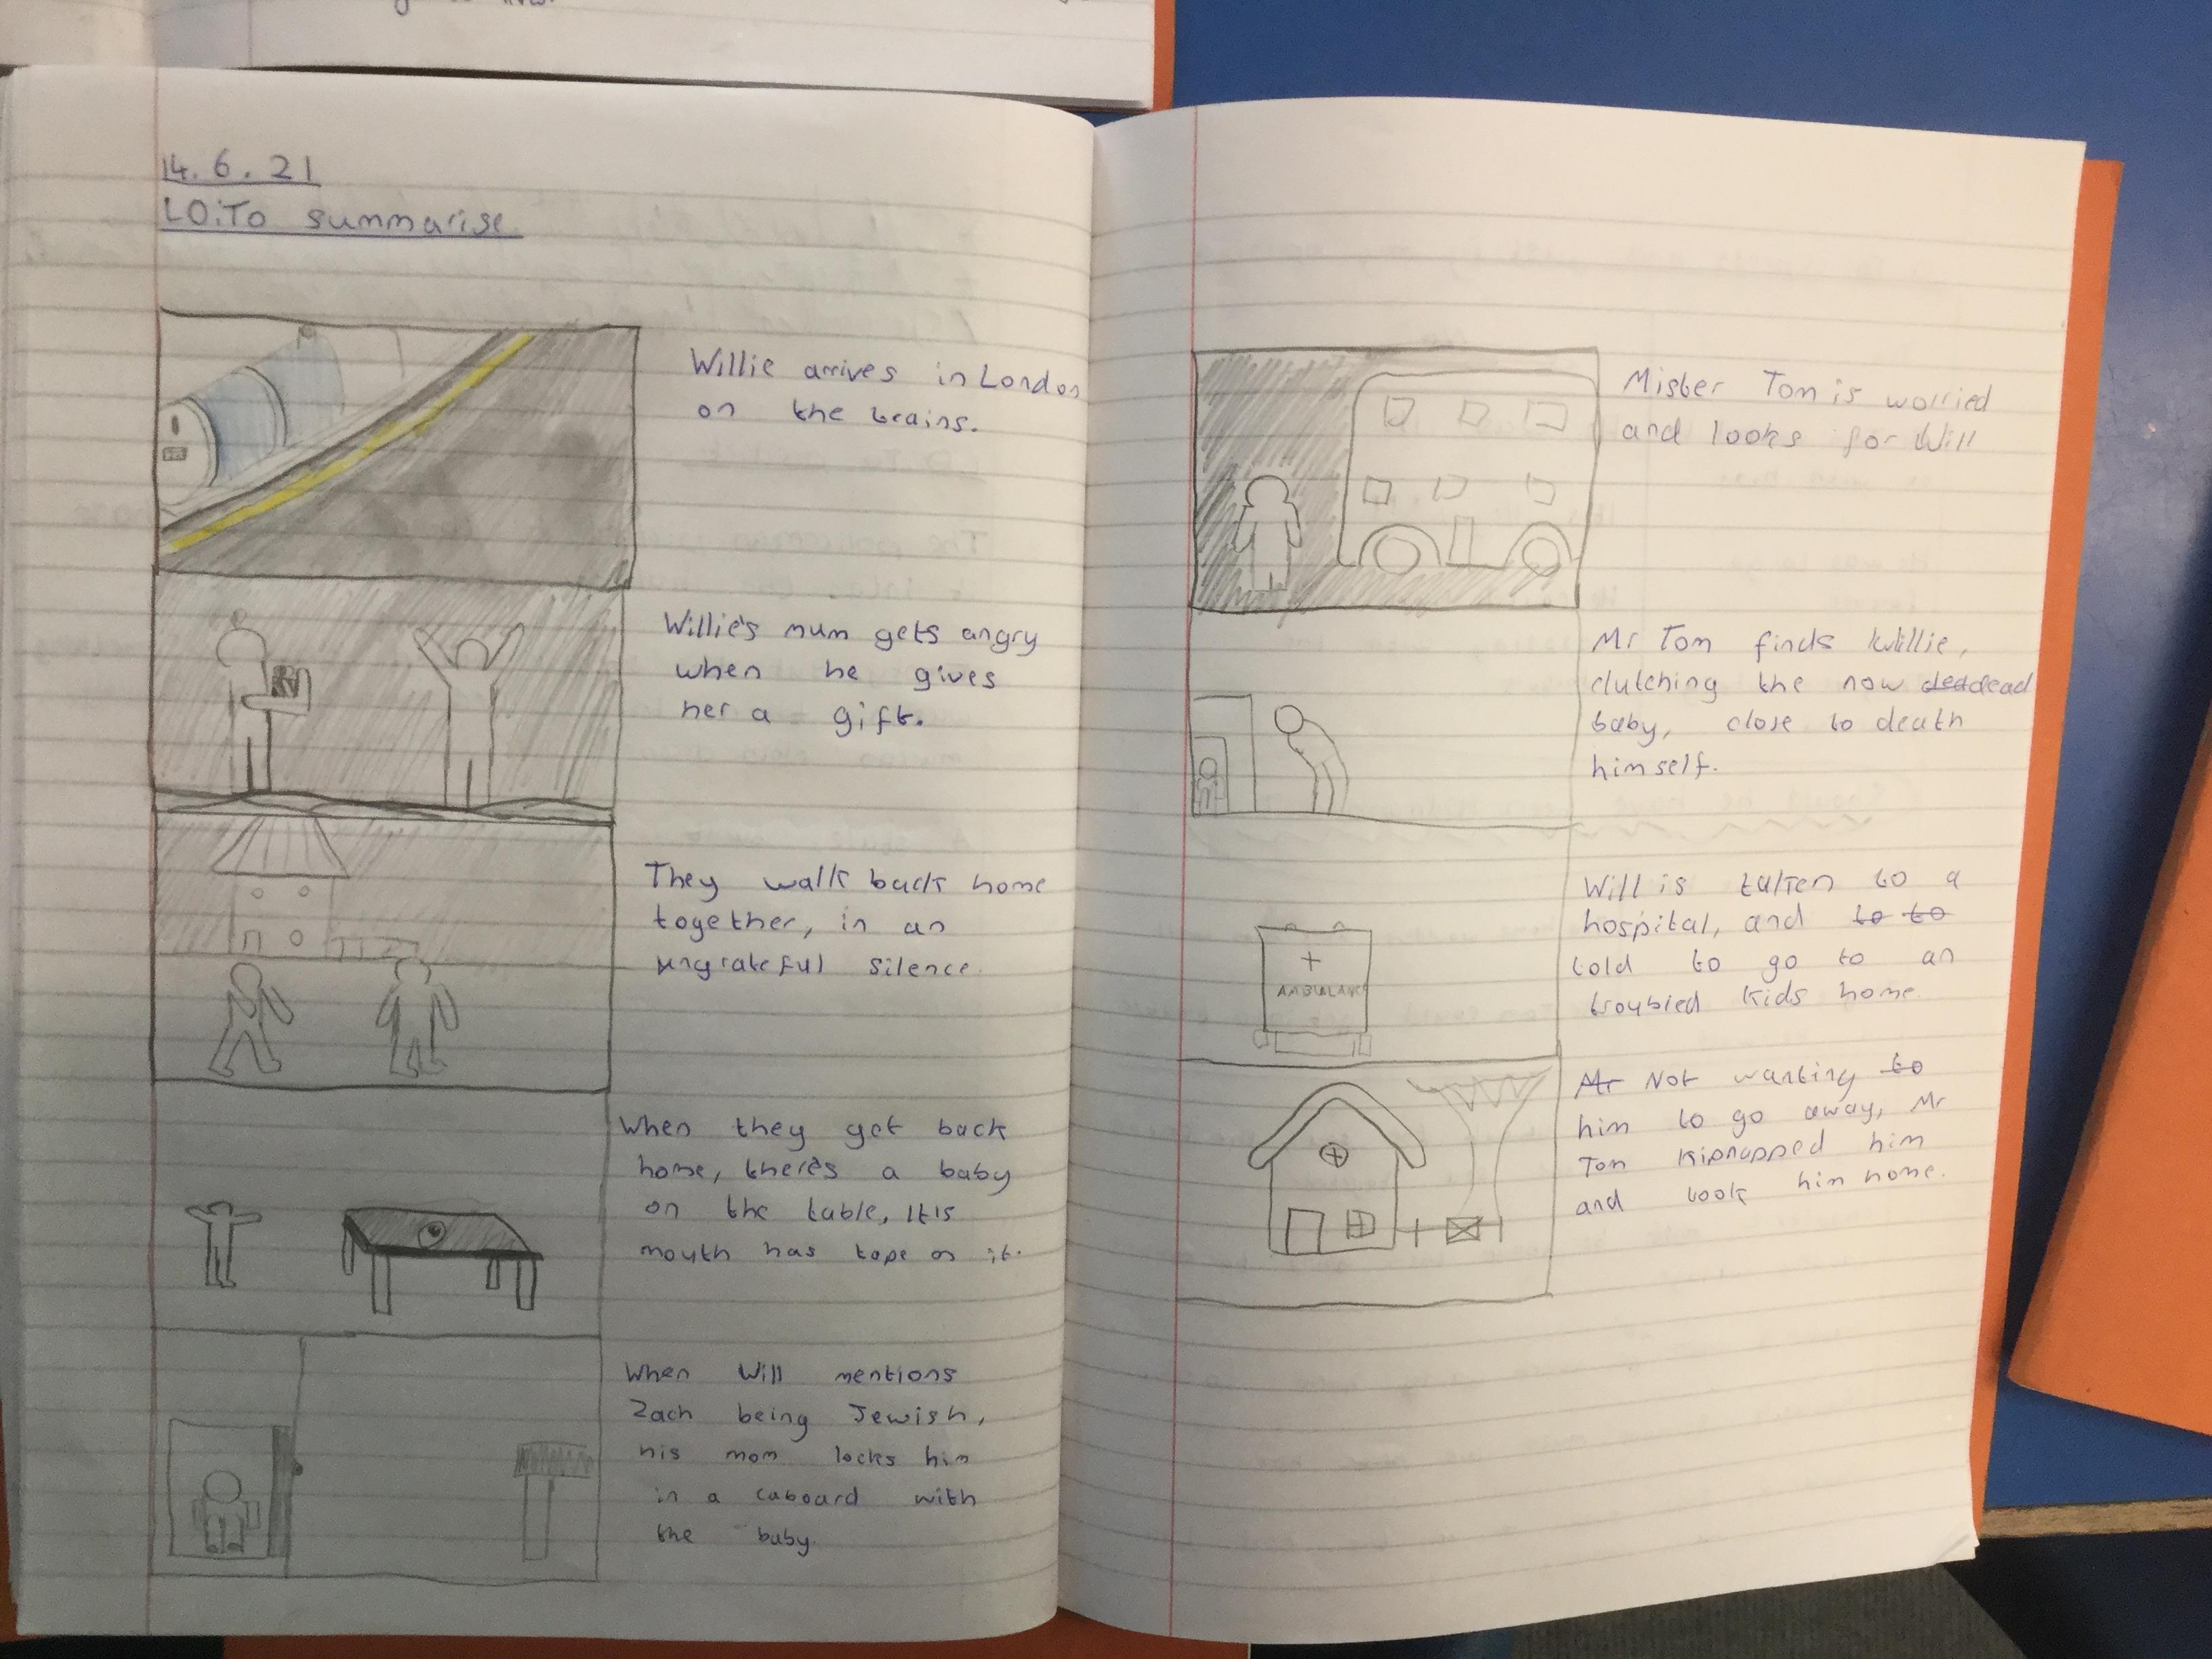 14.6.21
LO:To summarise
Willie arrives in London
on the trains.
Willie's mum gets angry
when he gives
her a gift.
They walk back home
together, in an
ungrateful silence.
When they get back
home, there's a baby
on the table, It is
mouth has tape on it.
When Will mentions
Zach being Jewish,
his mom locks him
in a caboard with
the baby.
Mister Tom is worried
and looks for Will
Mr Tom finds Willie,
clutching the now ded dead
baby, close to death
himself.
AMBULANCE
Will is taken to a
hospital, and to to
told to go to an
troubled kids home.
Mr Not wanting to
him to go away, Mr
Tom kipnapped him
and took him home.